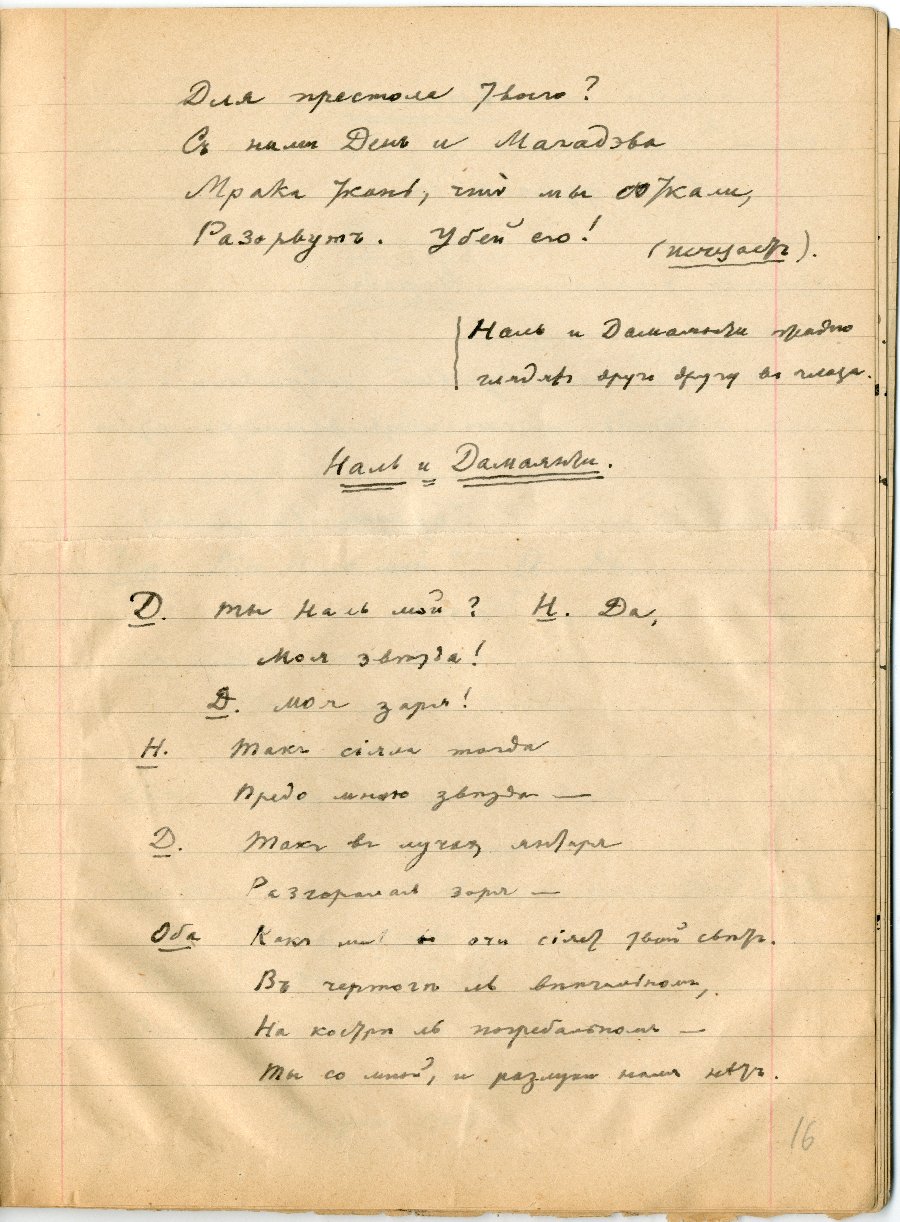 Для престола Твоего?
Съ нами День и Магадэва
Мрака ткань, что мы соткали,
Разорвутъ. Убей его!
(исчезаетъ).
Наль и Дамаянти жадно
глядятъ другъ другу въ глаза.
Наль и Дамаянти.
Д. Ты Наль мой? Н. Да,
Моя звѣзда!
Д. Моя заря!
Н. Такъ сіяла тогда
Предо мною звѣзда —
Д. Такъ въ лучахъ янтаря
Разгоралась заря —
Оба Какъ мнѣ въ очи сіяетъ твой свѣтъ.
Въ чертогѣ ль вѣнчальномъ,
На кострѣ ль погребальномъ —
Ты со мной, и разлуки намъ нѣтъ.
16